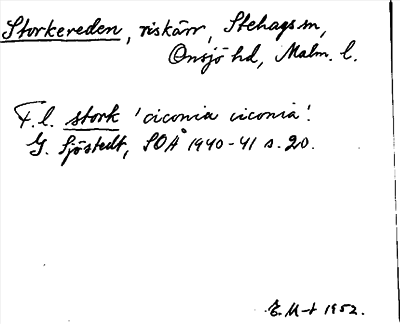 Storkereden, riskärr, Stehags sn,
Onsjö hd, Malm. l.
F.l. stork 'ciconia ciconia'.
G. Sjöstedt, SOÅ 1940-41 s. 20.
E. M-t 1952.